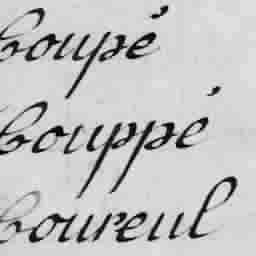 Coupé
Couppé
Coureul